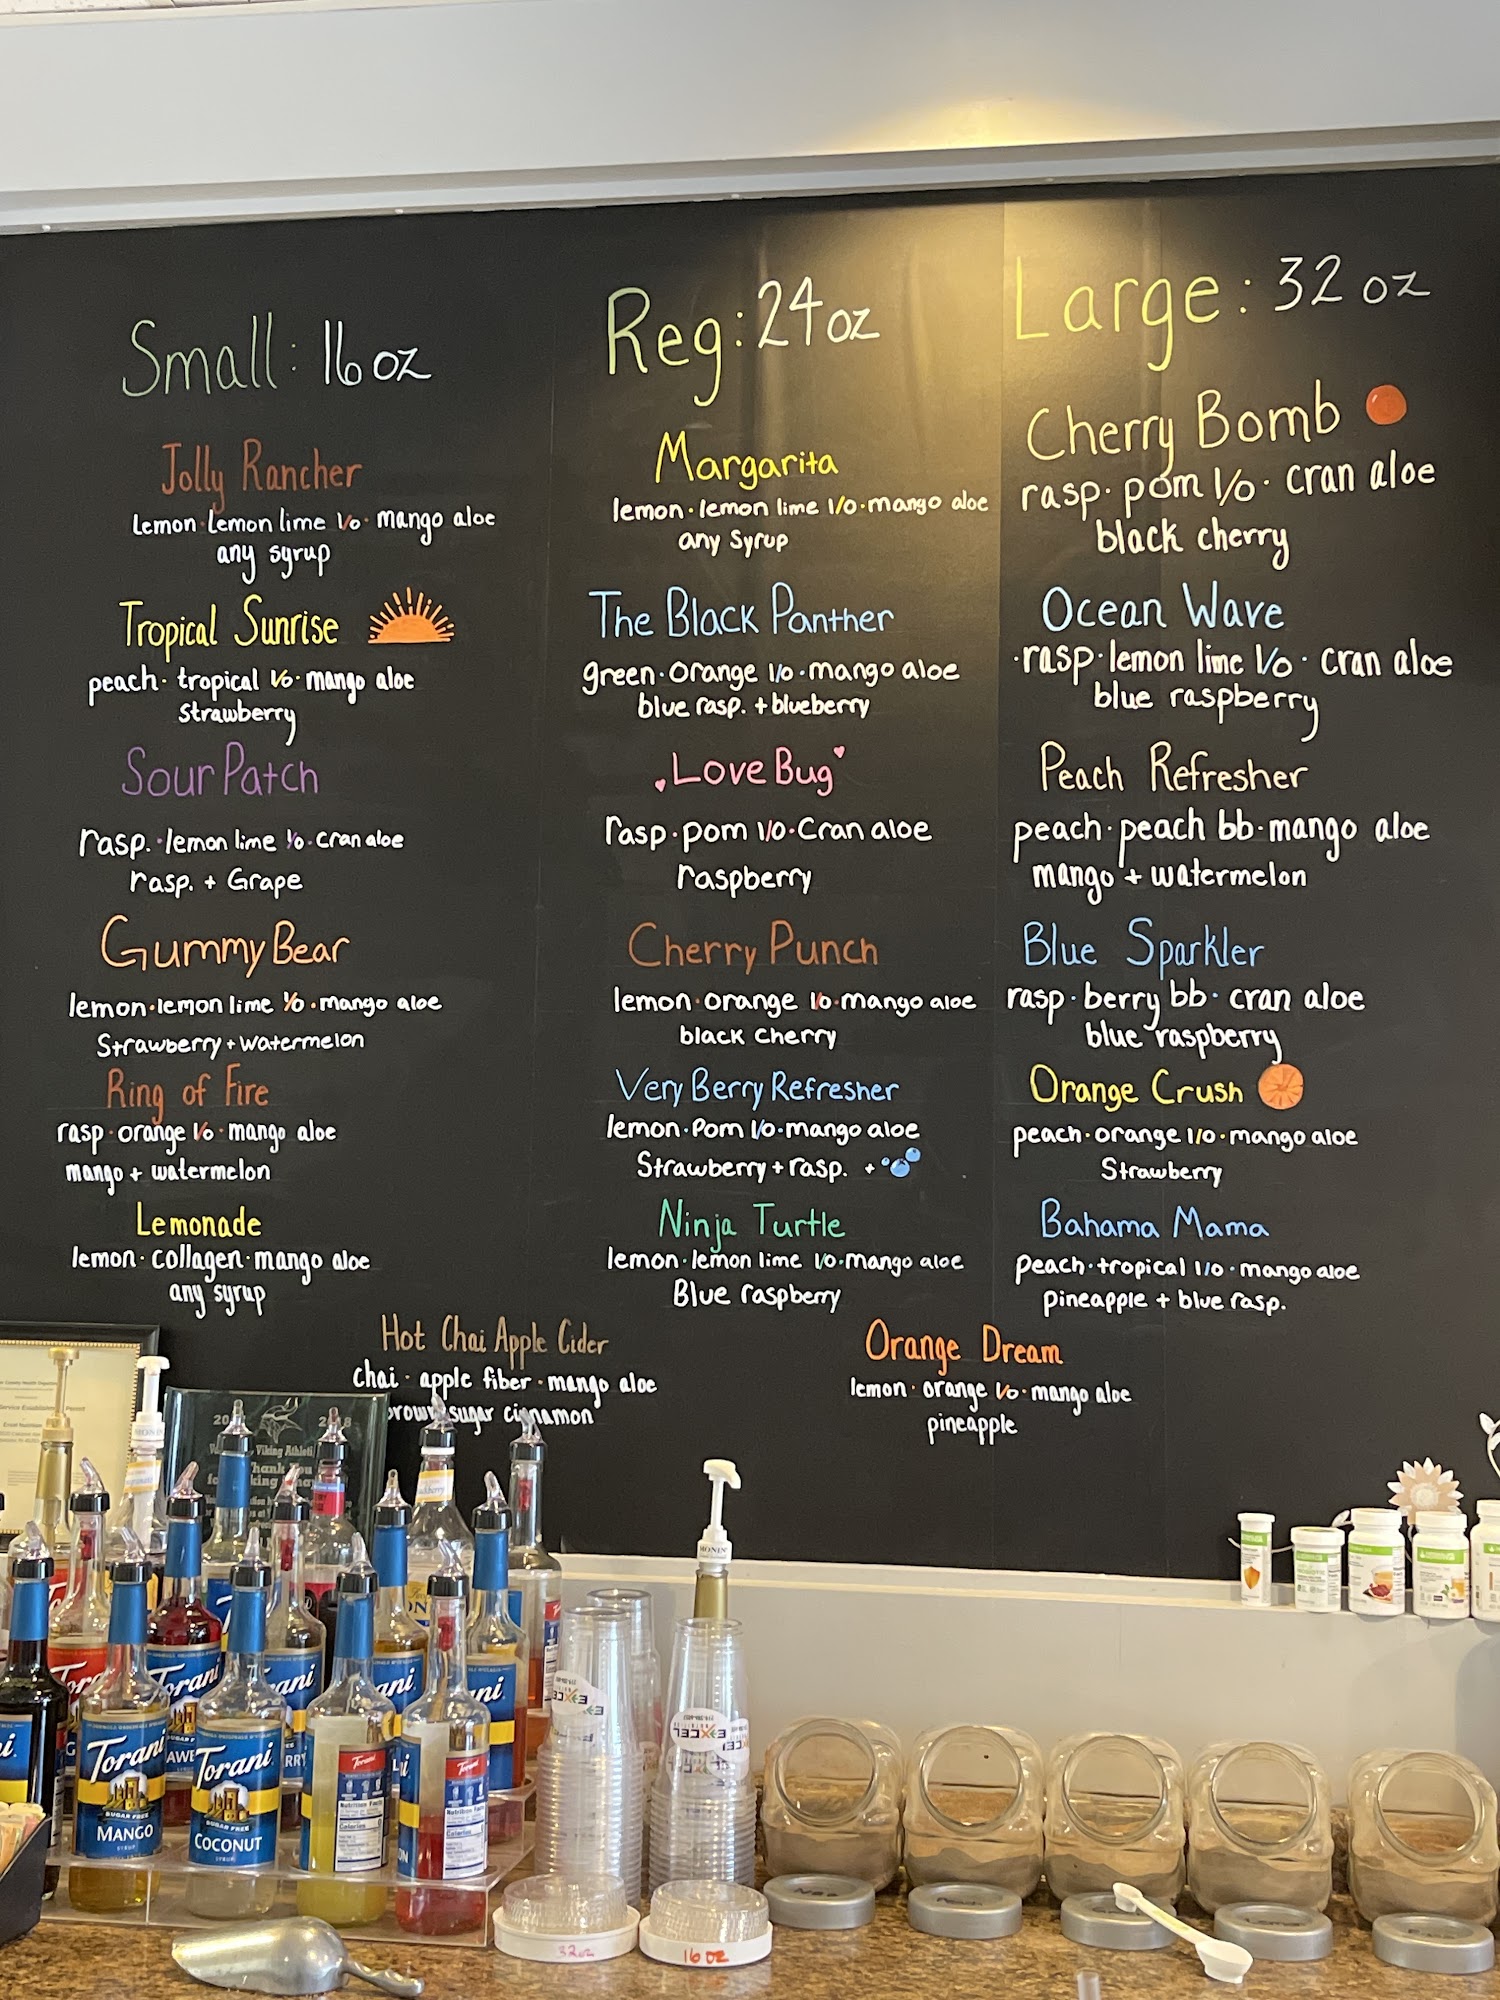 Small: 16 oz
Jolly Rancher
Lemon · Lemon lime 1/0 · mango aloe
any syrup
Tropical Sunrise
peach · tropical 1/0 · mango aloe
Strawberry
Sour Patch
rasp. · lemon lime 1/0 · cran aloe
rasp. + Grape
Gummy Bear
lemon · lemon lime 1/0 · mango aloe
Strawberry + watermelon
Ring of Fire
rasp · orange 1/0 · mango aloe
mango + watermelon
Lemonade
lemon · collagen · mango aloe
any syrup
Reg: 24 oz
Margarita
lemon · lemon lime 1/0 · mango aloe
any Syrup
The Black Panther
green · orange 1/0 · mango aloe
blue rasp. + blueberry
Love Bug
rasp · pom 1/0 · Cran aloe
raspberry
Cherry Punch
lemon · orange 1/0 · mango aloe
black cherry
Very Berry Refresher
lemon · Pom 1/0 · mango aloe
Strawberry + rasp. +
Ninja Turtle
lemon · lemon lime 1/0 · mango aloe
Blue raspberry
Large: 32 oz
Cherry Bomb
rasp · pom 1/0 · cran aloe
black cherry
Ocean Wave
· rasp · lemon lime 1/0 · cran aloe
blue raspberry
Peach Refresher
peach · peach bb · mango aloe
mango + watermelon
Blue Sparkler
rasp · berry bb · cran aloe
blue raspberry
Orange Crush
peach · orange 1/0 · mango aloe
Strawberry
Bahama Mama
peach · tropical 1/0 · mango aloe
pineapple + blue rasp.
Hot Chai Apple Cider
chai · apple fiber · mango aloe
brown sugar cinnamon
Orange Dream
lemon · orange 1/0 · mango aloe
pineapple
Viking Athleti
Thank You
MONIN
Torani
SUGAR FREE
MANGO
SYRUP
Torani
SUGAR FREE
COCONUT
SYRUP
Torani
Torani
Nutrition Facts
Calories
Torani
Nutrition Facts
Calories
EXCEL
EXCEL
32oz
16 oz